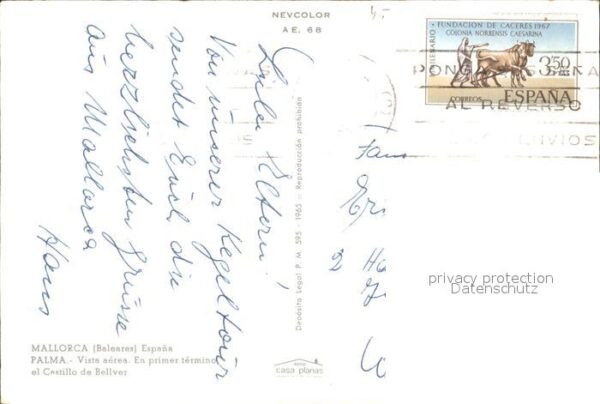 NEVCOLOR
AE. 68
Liebe Eltern!
Von unserer Kegeltour
sendet Euch die
herzlichsten Grüsse
aus Mallorca
Hans
MALLORCA (Baleares) España
PALMA.- Vista aérea. En primer término
el Castillo de Bellver
Depósito Legal P. M. 595 - 1965 - Reproducción prohibida
casa planas
FUNDACION DE CACERES 1967
COLONIA NORBENSIS CAESARINA
3,50
PTAS
CORREOS
ESPAÑA
PONGA
AL REVERSO
ENVIOS
Fam
privacy protection
Datenschutz